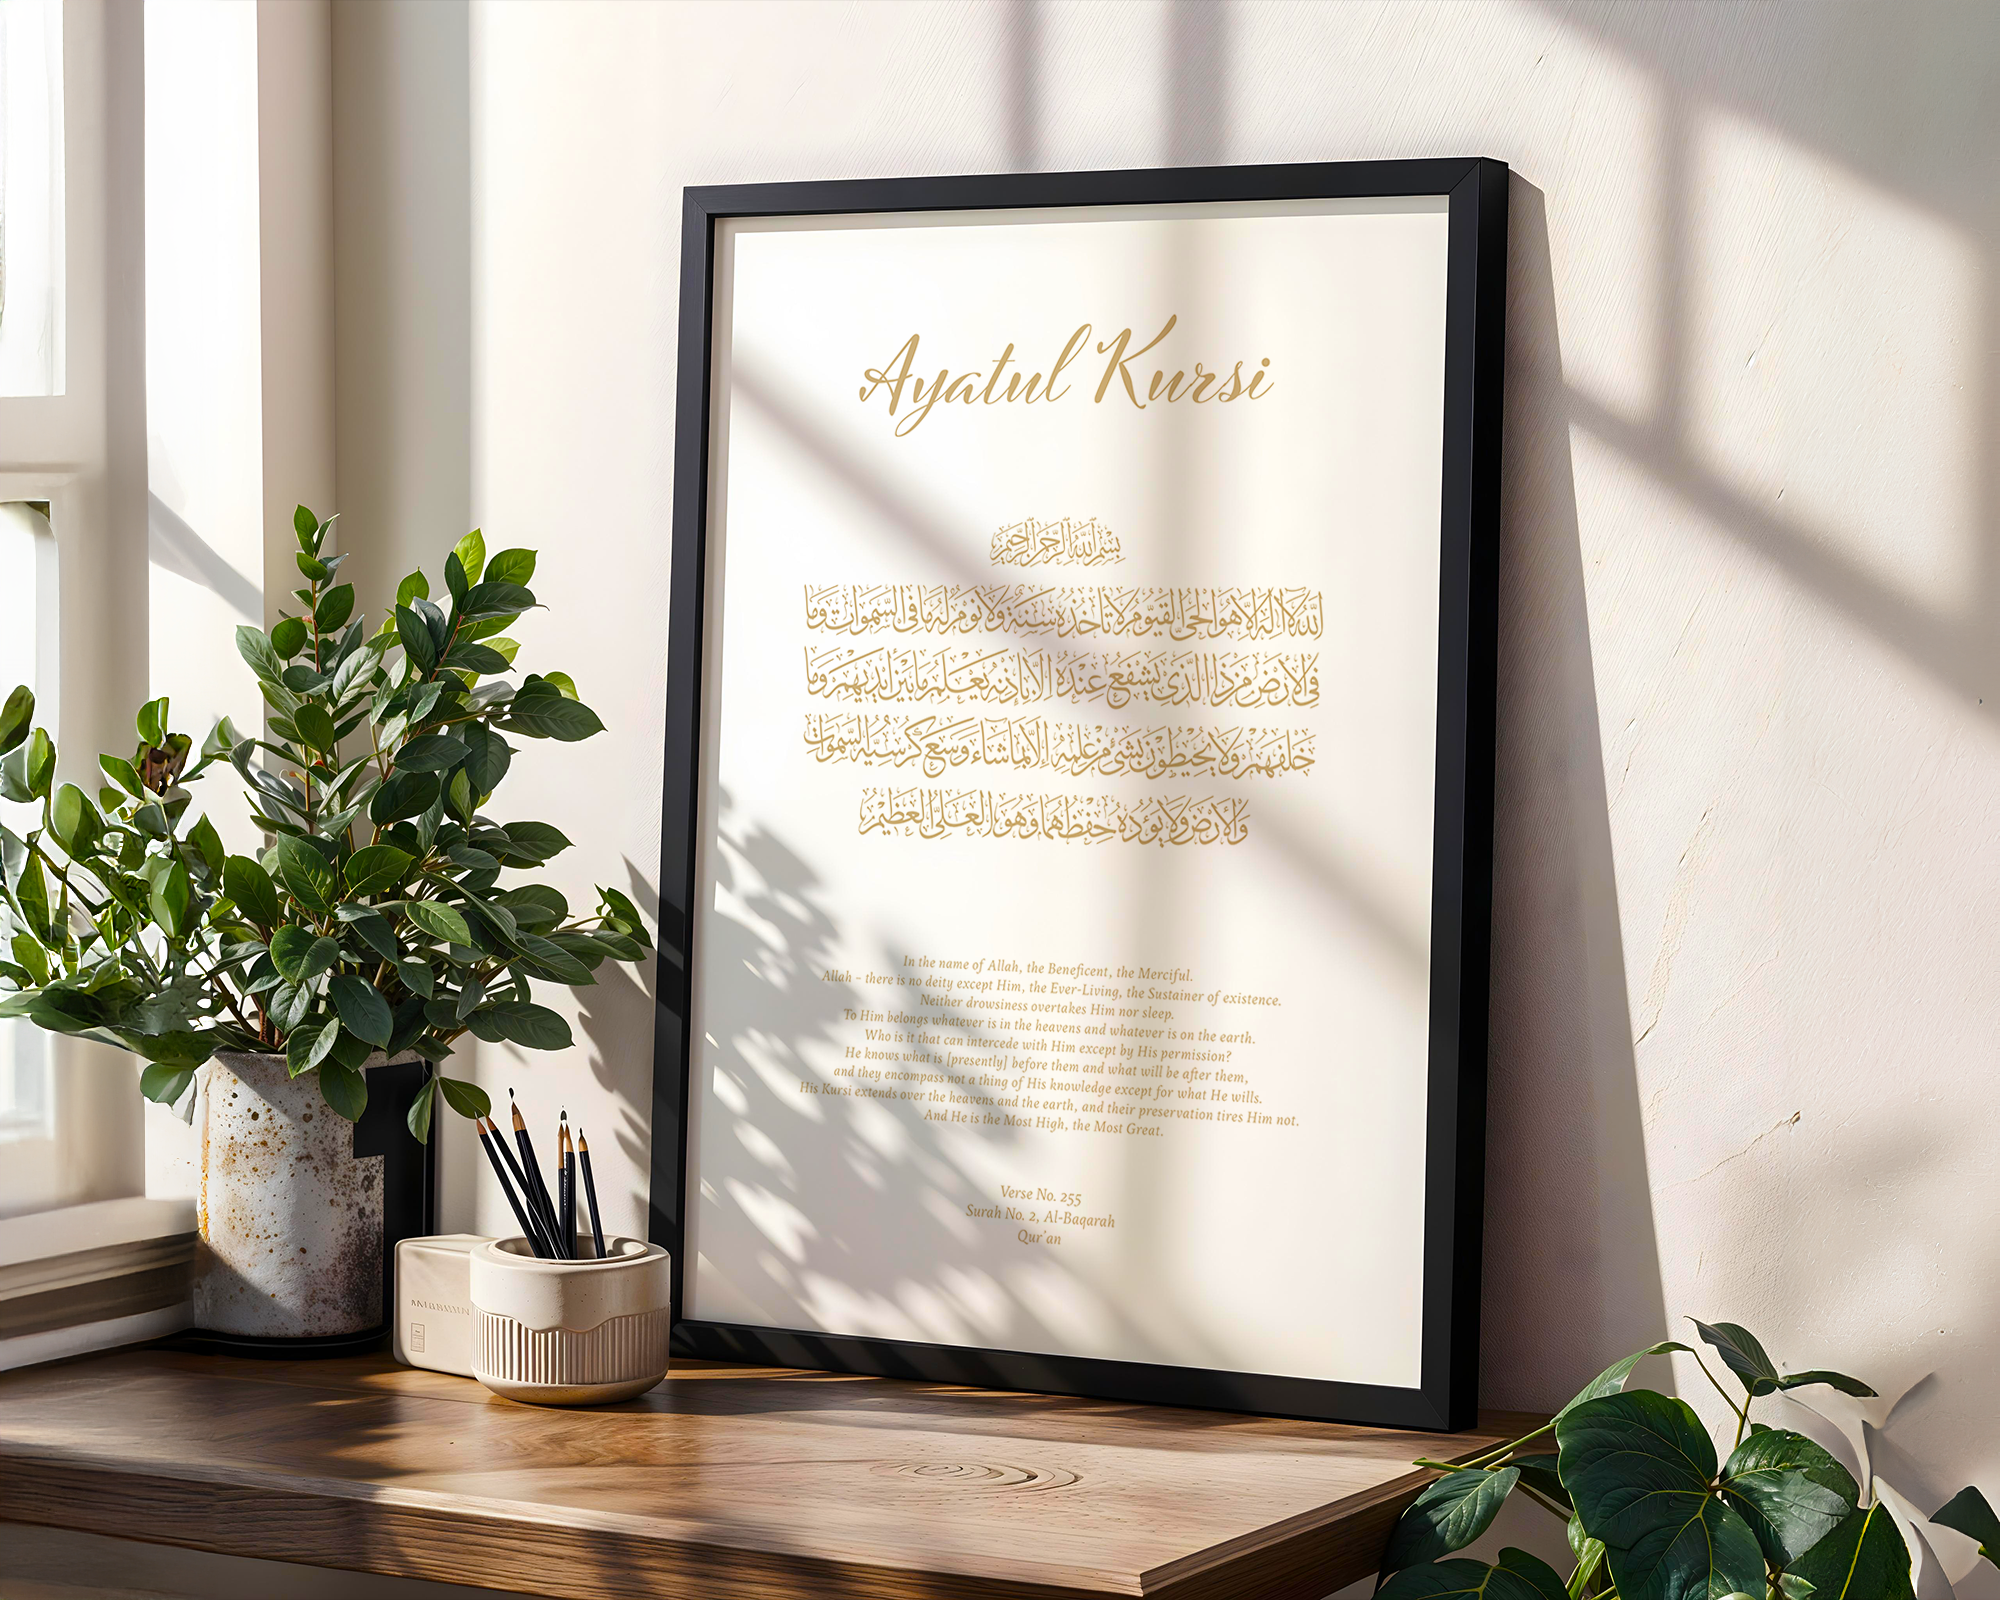 Ayatul Kursi
بِسْمِ اللَّهِ الرَّحْمَٰنِ الرَّحِيمِ
اللَّهُ لَا إِلَٰهَ إِلَّا هُوَ الْحَيُّ الْقَيُّومُ لَا تَأْخُذُهُ سِنَةٌ وَلَا نَوْمٌ لَهُ مَا فِي السَّمَوَاتِ وَمَا
فِي الْأَرْضِ مَنْ ذَا الَّذِي يَشْفَعُ عِنْدَهُ إِلَّا بِإِذْنِهِ يَعْلَمُ مَا بَيْنَ أَيْدِيهِمْ وَمَا
خَلْفَهُمْ وَلَا يُحِيطُونَ بِشَيْءٍ مِنْ عِلْمِهِ إِلَّا بِمَا شَاءَ وَسِعَ كُرْسِيُّهُ السَّمَوَاتِ
وَالْأَرْضَ وَلَا يَؤُدُهُ حِفْظُهُمَا وَهُوَ الْعَلِيُّ الْعَظِيمُ
In the name of Allah, the Beneficent, the Merciful.
Allah – there is no deity except Him, the Ever-Living, the Sustainer of existence.
Neither drowsiness overtakes Him nor sleep.
To Him belongs whatever is in the heavens and whatever is on the earth.
Who is it that can intercede with Him except by His permission?
He knows what is [presently] before them and what will be after them,
and they encompass not a thing of His knowledge except for what He wills.
His Kursi extends over the heavens and the earth, and their preservation tires Him not.
And He is the Most High, the Most Great.
Verse No. 255
Surah No. 2, Al-Baqarah
Qur'an